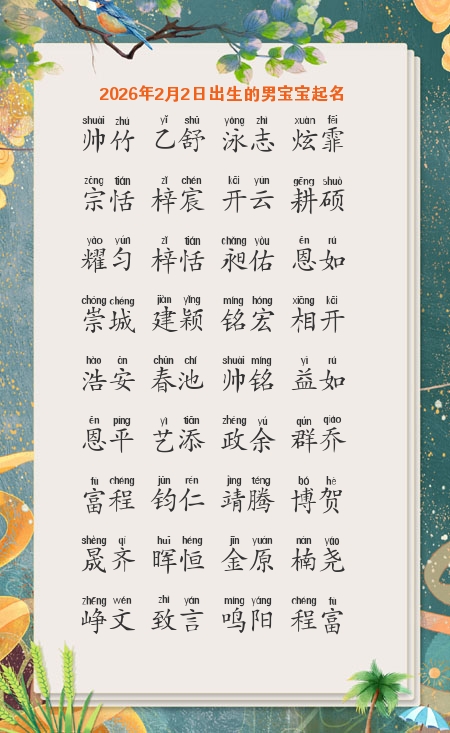 2026年2月2日出生的男宝宝起名
shuài zhú yǐ shū yǒng zhì xuàn fēi
帅竹 乙舒 泳志 炫霏
zōng tián zǐ chén kāi yún gēng shuò
宗恬 梓宸 开云 耕硕
yào yún zǐ tián chǎng yòu ēn rú
耀匀 梓恬 昶佑 恩如
chóng chéng jiàn yǐng míng hóng xiāng kāi
崇城 建颖 铭宏 相开
hào ān chūn chí shuài míng yì rú
浩安 春池 帅铭 益如
ēn píng yì tiān zhèng yú qún qiáo
恩平 艺添 政余 群乔
fù chéng jūn rén jìng téng bó hè
富程 钧仁 靖腾 博贺
shèng qí huī héng jīn yuán nán yáo
晟齐 晖恒 金原 楠尧
zhēng wén zhì yán míng yáng chéng fù
峥文 致言 鸣阳 程富